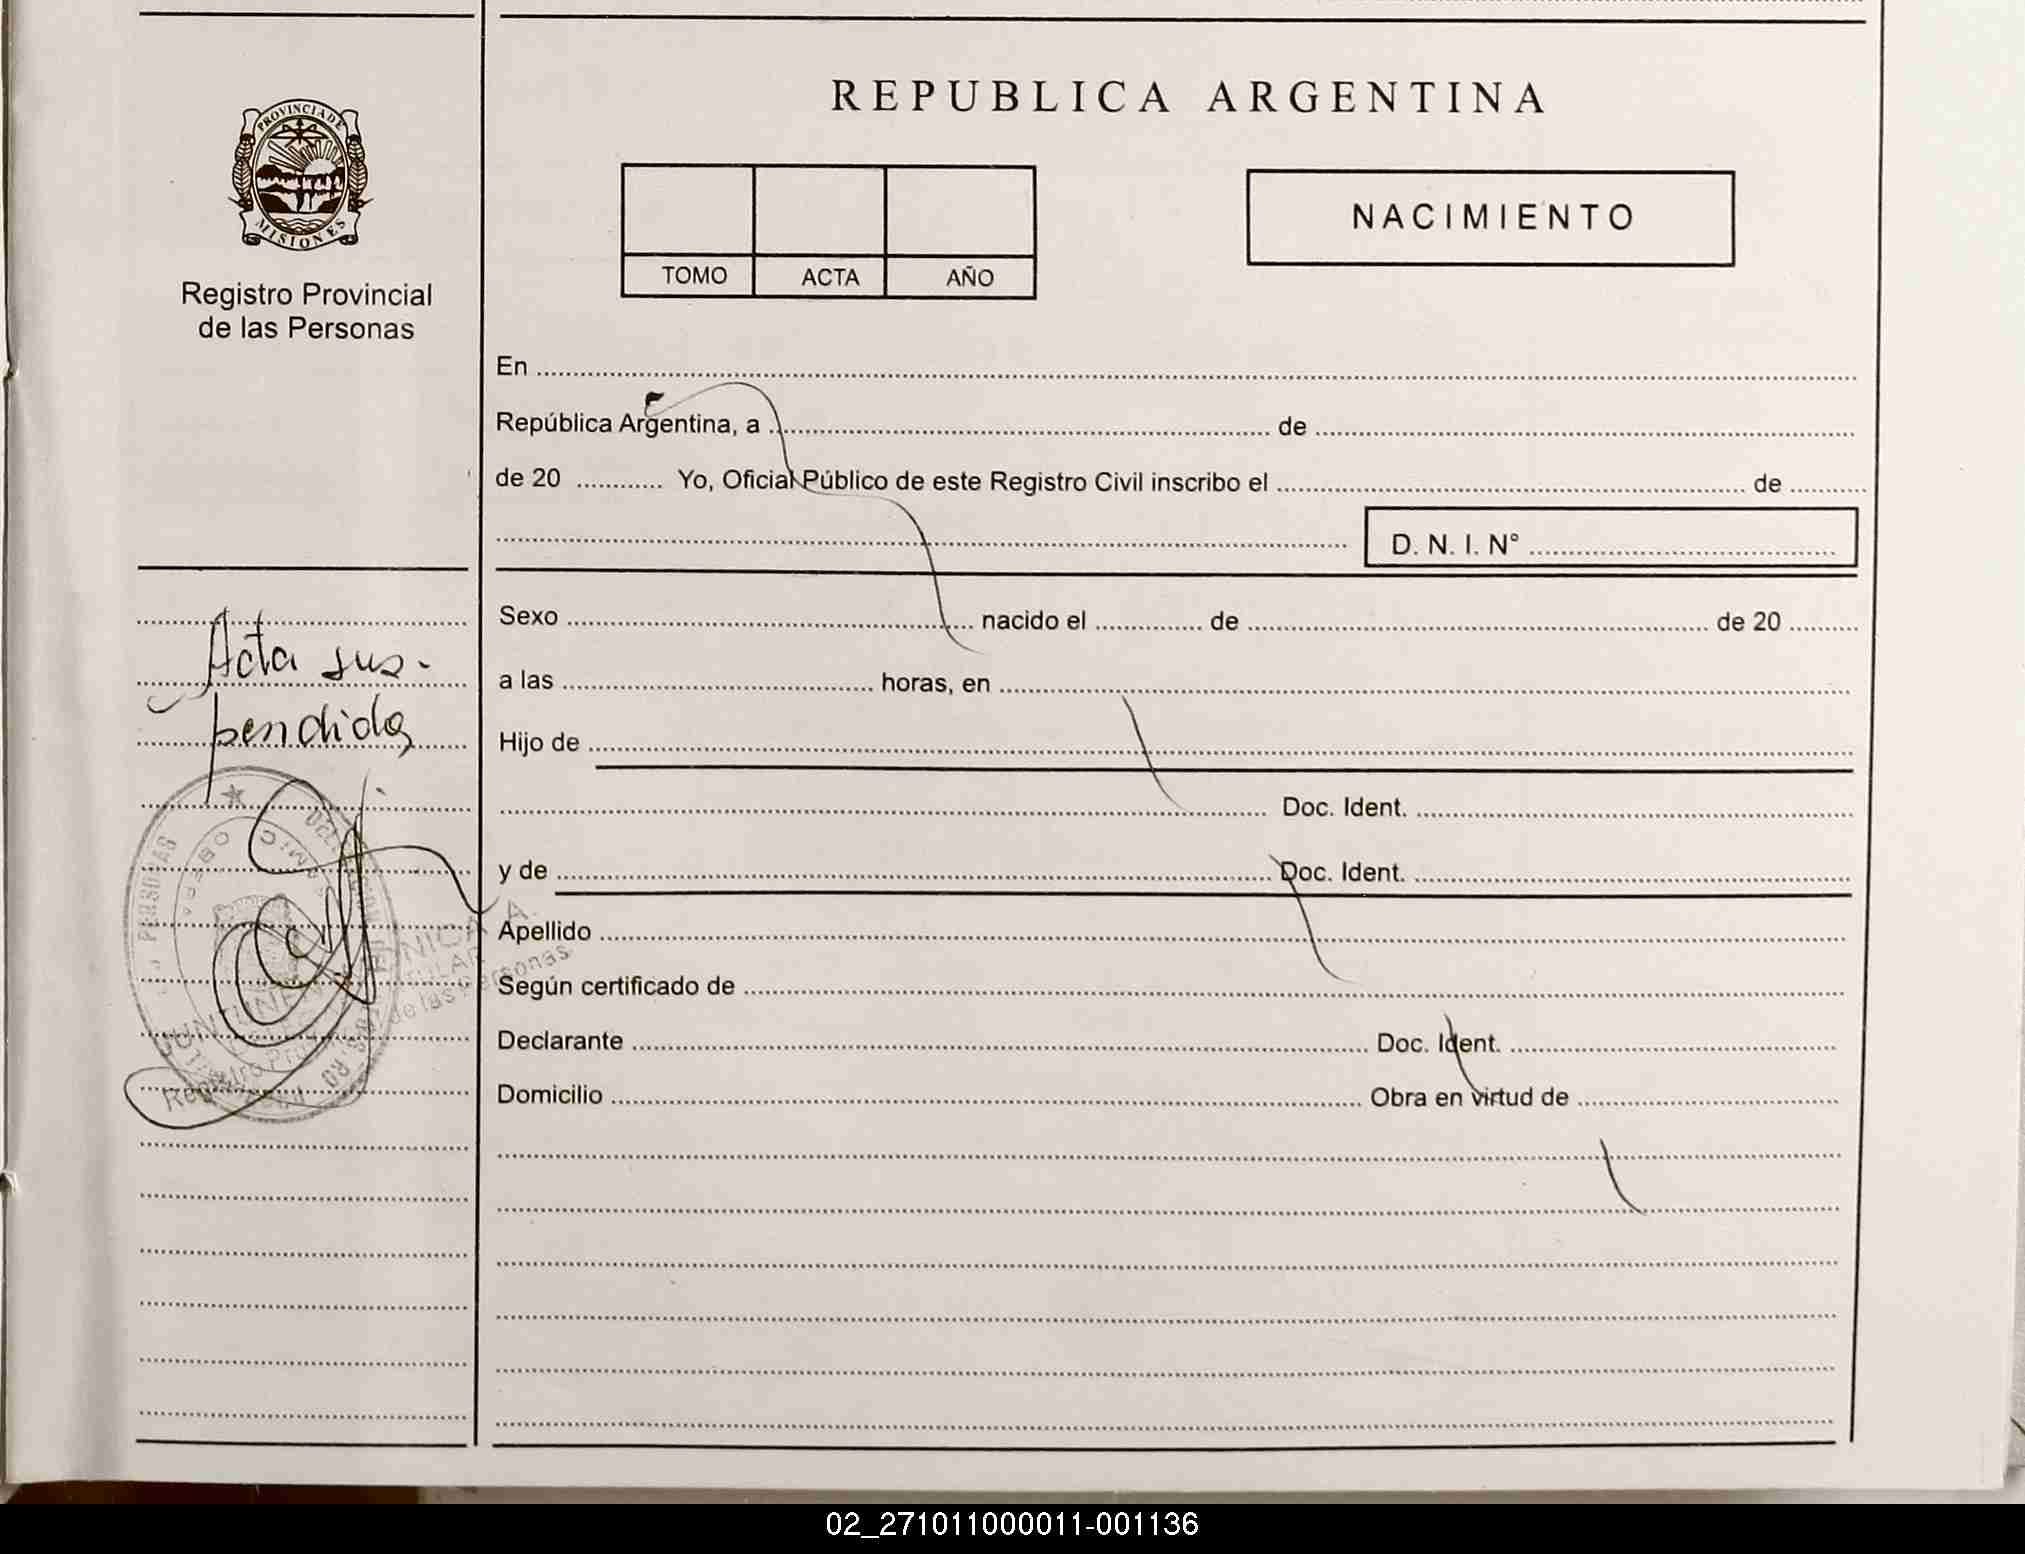 PROVINCIA DE
MISIONES
Registro Provincial
de las Personas
REPUBLICA ARGENTINA
TOMO ACTA AÑO
NACIMIENTO
En
República Argentina, a de
de 20 Yo, Oficial Público de este Registro Civil inscribo el de
D. N. I. N°
Sexo nacido el de de 20
a las horas, en
Hijo de
Doc. Ident.
y de Doc. Ident.
Apellido
Según certificado de
Declarante Doc. Ident.
Domicilio Obra en virtud de
Acta sus-
pendida
PERSONAS
OBERA
Registro Provincial de las Personas
02_271011000011-001136